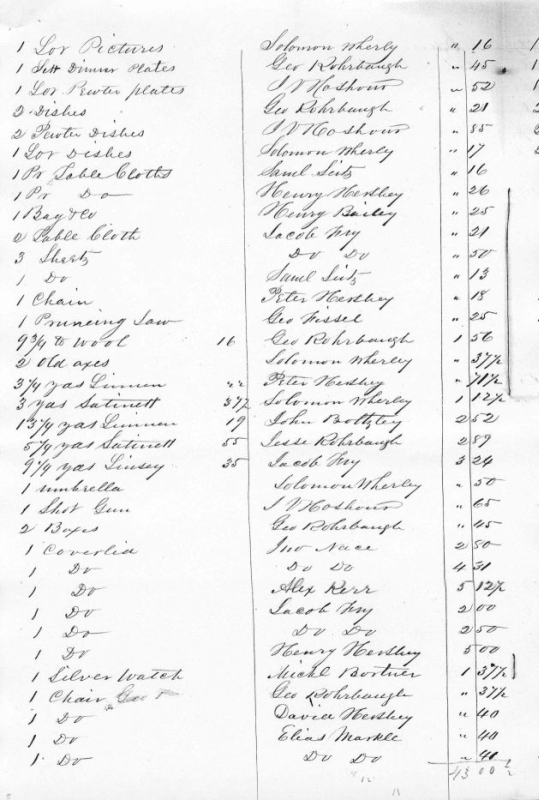 1 Lor Pictures Solomon Wherly " 16
1 Sett Dinner Plates Geo Rohrbaugh " 45
1 Lor Pewter plates J V Hoshour " 52
2 Dishes Geo Rohrbaugh " 21
2 Pewter Dishes J V Hoshour " 85
1 Lor Dishes Solomon Wherly " 17
1 Pr Table Cloths Saml Seitz " 16
1 Pr Do Henry Hershey " 26
1 Bag & Co Henry Bailey " 25
2 Table Cloth Jacob Fry " 21
3 Sheetz Do Do " 50
1 Do Saml Seitz " 13
1 Chain Peter Hershey " 18
1 Pruneing Saw Geo Fissel " 25
9 3/4 lb Wool 16 Geo Rohrbaugh 1 56
2 Old axes Solomon Wherly " 37 1/2
3 1/4 yds Linnen 22 Peter Hershey " 71 1/2
3 yds Satinett 37 1/2 Solomon Wherly 1 12 1/2
13 1/4 yds Linnen 19 John 2 52
5 1/4 yds Satinett 55 Jesse Rohrbaugh 2 89
9 1/4 yds Linsey 35 Jacob Fry 3 24
1 umbrella Solomon Wherly " 50
1 Shot Gun J V Hoshour " 65
2 Boxes Geo Rohrbaugh " 45
1 Coverlid Jno Nace 2 50
1 Do Do Do 4 31
1 Do Alex Kerr 5 12 1/2
1 Do Jacob Fry 2 00
1 Do Do Do 2 50
1 Do Henry Hershey 5 00
1 Silver Watch Michl Bortner 1 37 1/2
1 Chair Geo Rohrbaugh " 37 1/2
1 Do David Hershey " 40
1 Do Elias Markle " 40
1 Do Do Do " 40
43 00 1/2